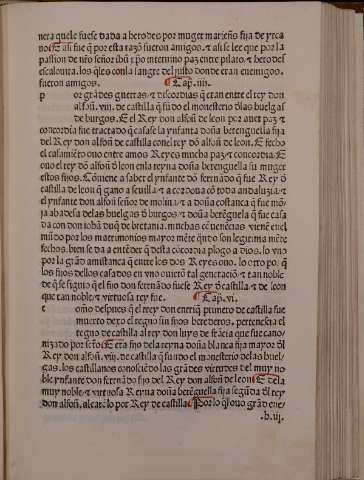 nera quele fuese dada a herodes por muger mariens fija de yrca
no. E asi fue q̄ por esta razō fueron amigos. ⁊ asi se lee que por la
passion de nr̄o señor ihū xp̄o interuino paz entre pilato ⁊ herodes
escalonita. los q̄les conla sangre del justo donde eran enemigos.
fueron amigos. Cap̄. iiij.
p or grādes guerras ⁊ discordias q̄ eran entre el rey don
alfon̄. viij. de castilla q̄ fūdo el monesterio dlas huelgas
de burgos. E el Rey don alfon̄ de leon por auer paz ⁊
concordia fue tractado q̄ casase la ynfanta doña berenguella fija
del Rey don alfon̄ de castilla conel rey dō alfon̄ de leon. E fecho
el casamiēto ouo entre amos Reyes mucha paz ⁊ concordia. E
ouo el rey dō alfon̄ d̄ leon enla reyna doña berenguella su muger
estos fijos. Cōuiene a saber el ynfante dō ferrādo q̄ fue Rey d̄
castilla de leon q̄ gano a seuilla ⁊ a cordoua cō toda andaluzia. ⁊
el ynfante don alfon̄ señor de molina. ⁊ a doña costança q̄ fue mō
ja abadesa delas huelgas d̄ burgos. ⁊ doña berēguela q̄ fue casa
da con don iohā duq̄ de bretania. muchas cōueniēcias vienē enel
mūdo por los matrimonios mayor mēte q̄ndo son legitima mēte
fechos. bien se da a entēder q̄ desta cōcordia plogo a dios. lo vno
por la grād amistança q̄ entre los dos Reyes ouo. lo otro por q̄
los fijos dellos casados en vno ouierō tal generaciō ⁊ tan noble
de q̄ se siguio q̄ el fijo don ferrādo fuese Rey d̄ castilla. ⁊ de leon
que tan noble ⁊ virtuosa rey fue. Cap̄. vi.
t oño despues q̄ el rey don enriq̄ primero de castilla fue
muerto dexo el regno sin fijos herederos. pertenescia el
regno de castilla al rey don luys de frācia que fue cano
nizado por señor. Era fijo dela reyna doña blanca fija mayor d̄l
Rey don alfon̄. viij. de castilla q̄ fundo el monesterio de las huel
gas. los castillanos conosciēdo las grādes virtudes del muy no
ble ynfante don ferrādo fijo del Rey don alfon̄ de leon. E dela
muy noble ⁊ virtuosa Reyna doña berēguella fija segūda d̄l rey
don alfon̄, alçarōlo por Rey de castilla. Por lo q̄l ouo grād ene/
.b.vj.